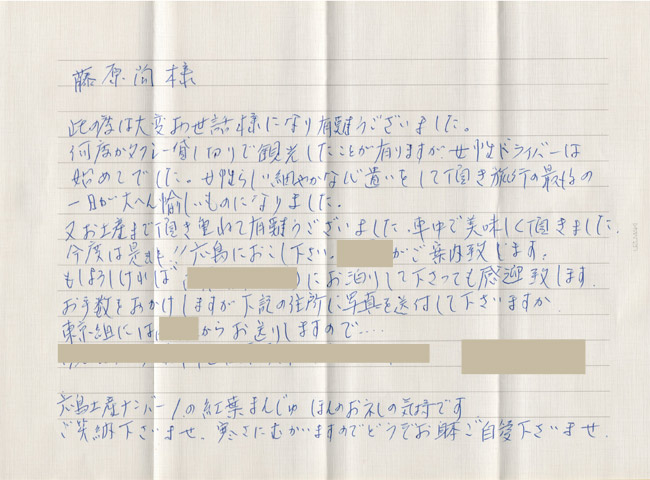 藤原 様
此の度は大変お世話様になり有難うございました。
何度かタクシー貸し切りで観光したことが有りますが女性ドライバーは
始めてでした。女性らしい細やかな心遣いをして頂き旅行の最後の
一日が大へん愉しいものになりました。
又お土産まで頂き重ねて有難うございました。車中で美味しく頂きました。
今度は是非!!広島におこし下さい。 がご案内致します。
もしよろしければ )にお泊りして下さっても感迎致します。
お手数をおかけしますが下記の住所に写真を送付して下さいますか。
東京組には からお送りしますので....
広島土産ナンバー1の紅葉まんじゅ ほんのお礼の気持です
ご笑納下さいませ。寒さにむかいますのでどうぞお身体ご自愛下さいませ。